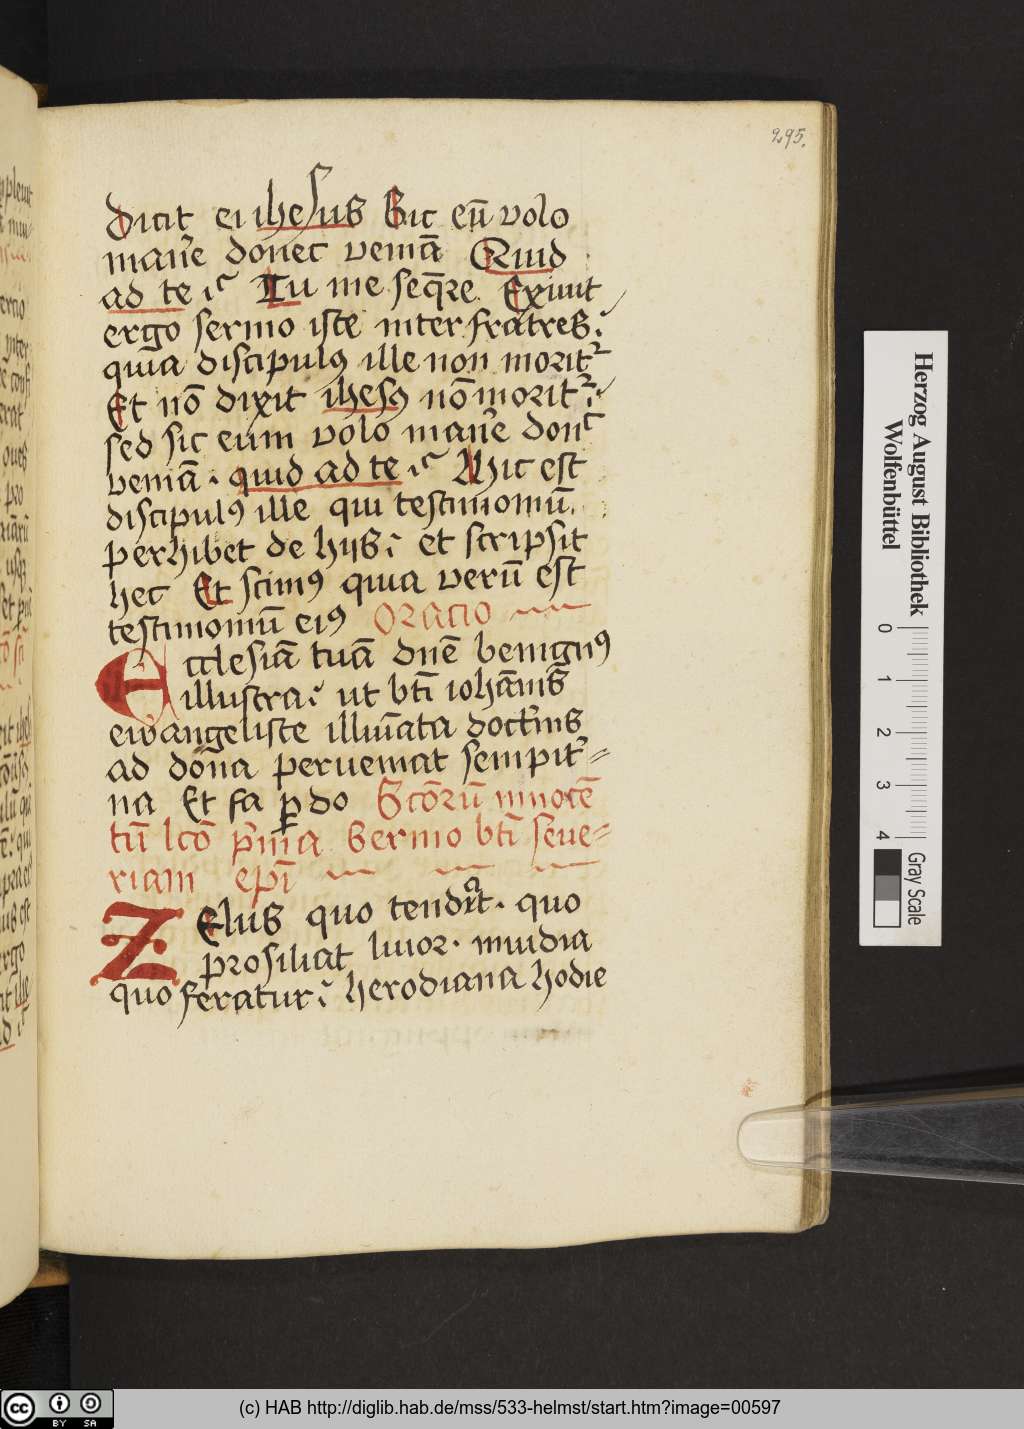 295.
dicit ei ihesus Sic eū volo
man̄e donec veniā Quid
ad te ⁊c̄ Tu me seq̄re Exiuit
ergo sermo iste inter fratres:
quia discipulꝰ ille non morit᷑
Et nō dixit ihesꝰ nō morit᷑:
sed sic eum volo man̄e donc̄
veniā · quid ad te ⁊c̄ Hic est
discipulꝰ ille qui testimoniū
perhibet de hijs: et scripsit
hec Et scimꝰ quia verū est
testimoniū eiꝰ Oracio
Ecclesiā tuā dn̄e benignꝰ
illustra: ut bt̄i iohānis
ewangeliste illūiata doct̄nis
ad dōna perueniat sempit̄=
na Et fa ꝑ do Sc̄orū innocē
tū lcō p̄ma Sermo bt̄i seue=
riani ep̄i
ZElus quo tendat · quo
prosiliat liuor · inuidia
quo feratur: herodiana hodie
Herzog August Bibliothek
Wolfenbüttel
0 1 2 3 4
Gray Scale
cc BY SA
(c) HAB http://diglib.hab.de/mss/533-helmst/start.htm?image=00597